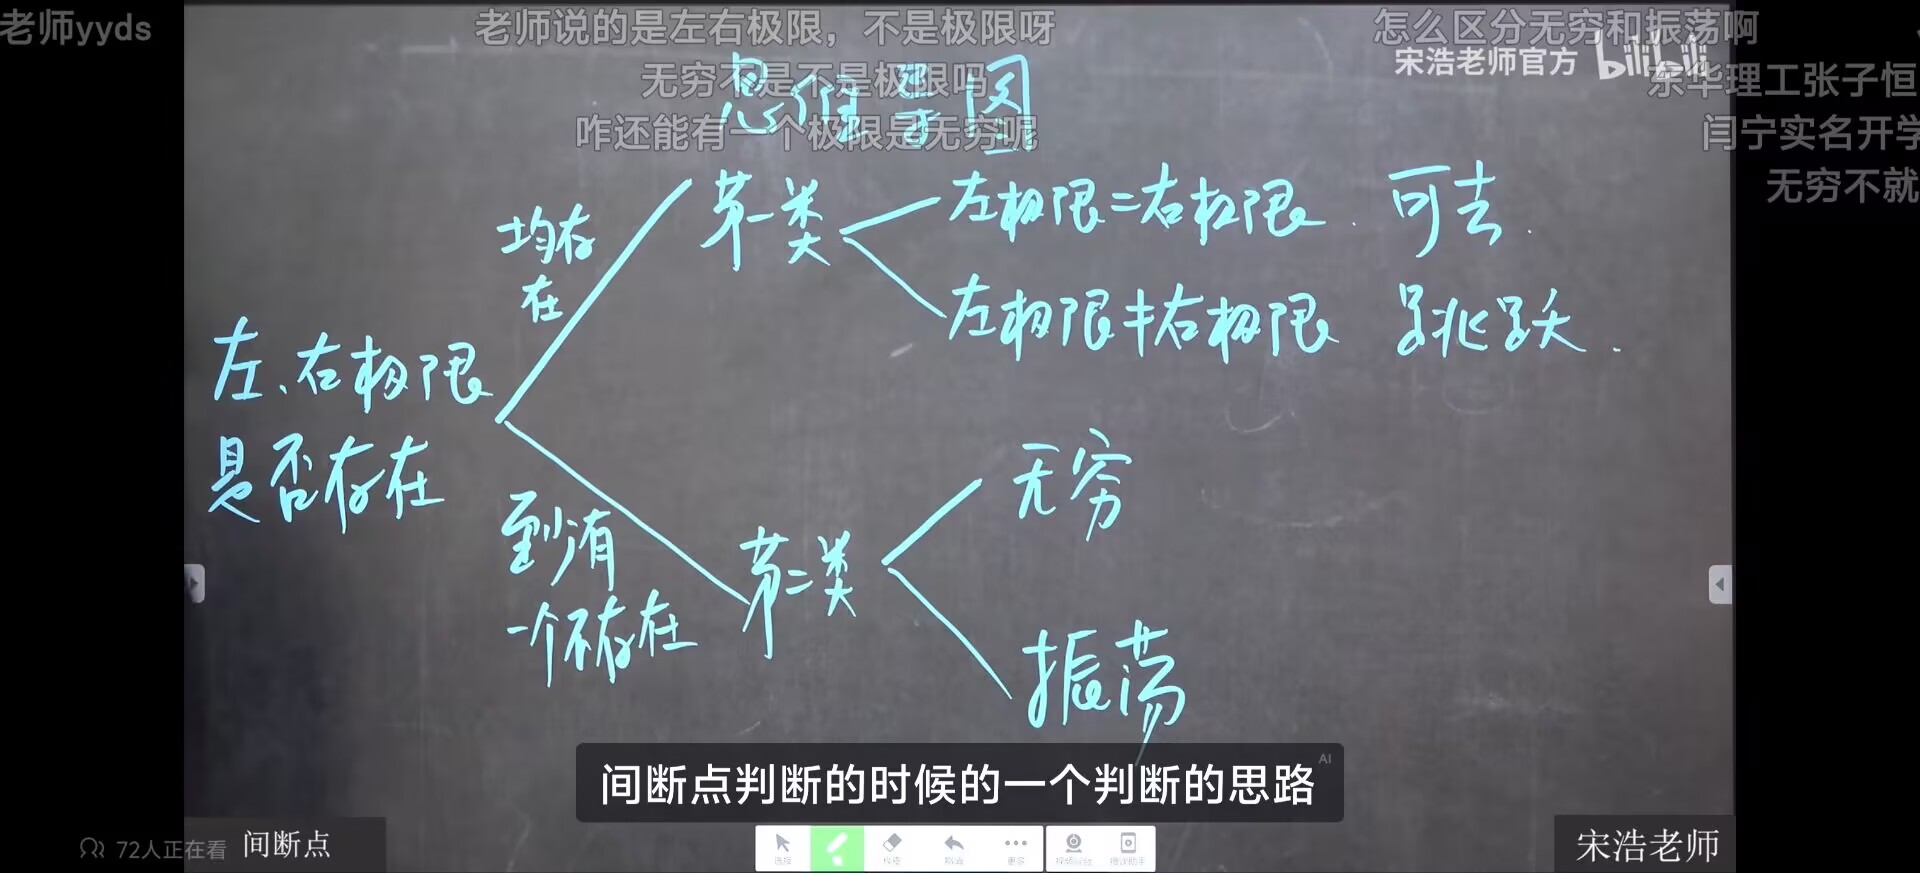 老师yyds
老师说的是左右极限，不是极限呀
怎么区分无穷和振荡啊
宋浩老师官方 bilibili
无穷不是不是极限吗
东华理工张子恒
思维导图
咋还能有一个极限是无穷呢
闫宁实名开学
无穷不就
均存在
第一类
左极限=右极限. 可去.
左极限≠右极限 跳跃.
左、右极限
是否存在
至少有
一个不存在
第二类
无穷
振荡
间断点判断的时候的一个判断的思路
AI
72人正在看
间断点
选择
更多
宋浩老师